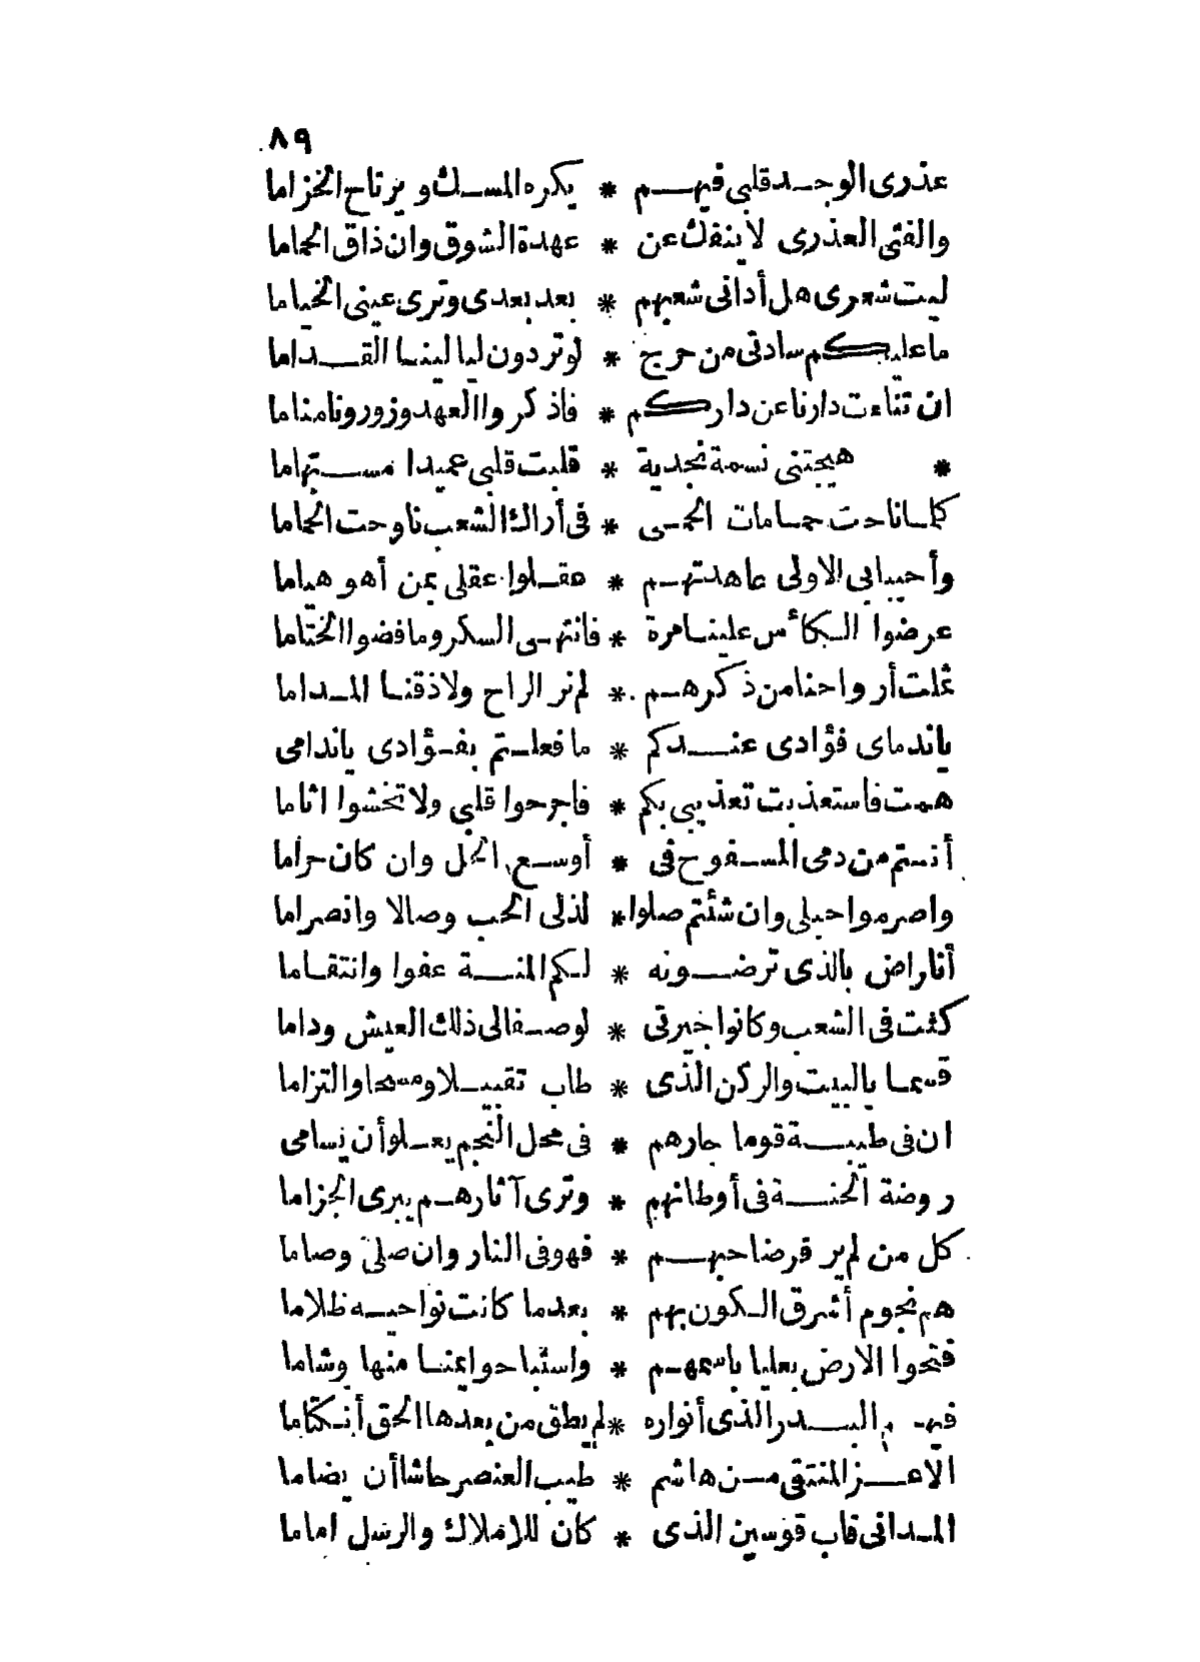 ٨٩
عذرى الوجد قلبى فيهم * يكره المسك ويرتاح الخزاما
والفتى العذرى لا ينفك عن * عهدة الشوق وان ذاق الحماما
ليت شعرى هل أدانى شعبهم * بعد بعدى وترى عينى الخياما
ما عليكم سادتى من حرج * لو تردون ليالينا القداما
ان تناءت دارنا عن داركم * فاذكروا العهد وزورونا مناما
* هيجتنى نسمة نجدية * قلبت قلبى عميدا مستهاما
كلما ناحت حمامات الحمى * فى أراك الشعب ناوحت الحماما
وأحيبابى الاولى عاهدتهم * عقلوا عقلى بمن أهوهياما
عرضوا الكأس علينا مرة * فانتهى السكر وما فضوا الختاما
ثملت أرواحنا من ذكرهم * لم نر الراح ولا ذقنا المداما
ياندماى فؤادى عندكم * ما فعلتم بفؤادى ياندامى
همت فاستعذبت تعذيبى بكم * فاجرحوا قلبى ولا تخشوا اثاما
أنتم من دمى المسفوح فى * أوسع الحل وان كان حراما
واصرموا حبلى وان شئتم صلوا * لذلى الحب وصالا وانصراما
أنا راض بالذى ترضونه * لكم المنة عفوا وانتقاما
كنت فى الشعب وكانوا خيرتى * لوصفالى ذلك العيش وداما
قسما بالبيت والركن الذى * طاب تقبيلا ومسحا والتزاما
ان فى طيبة قوما جارهم * فى محل النجم يعلو أن يسامى
روضة الجنة فى أوطانهم * وترى آثارهم يبرى الجزاما
كل من لم ير قرضا حبهم * فهو فى النار وان صلى وصاما
هم نجوم أشرق الكون بهم * بعدما كانت نواحيه ظلاما
فتحوا الارض بعليا باسمهم * واستباحوا يمنا منها وشاما
فيهم البدر الذى أنواره * لم يطق من بعدها الحق أنكتاما
الاعز المنتقى من هاشم * طيب العنصر حاشا أن يضاما
المدانى قاب قوسين الذى * كان للاملاك والرسل اماما